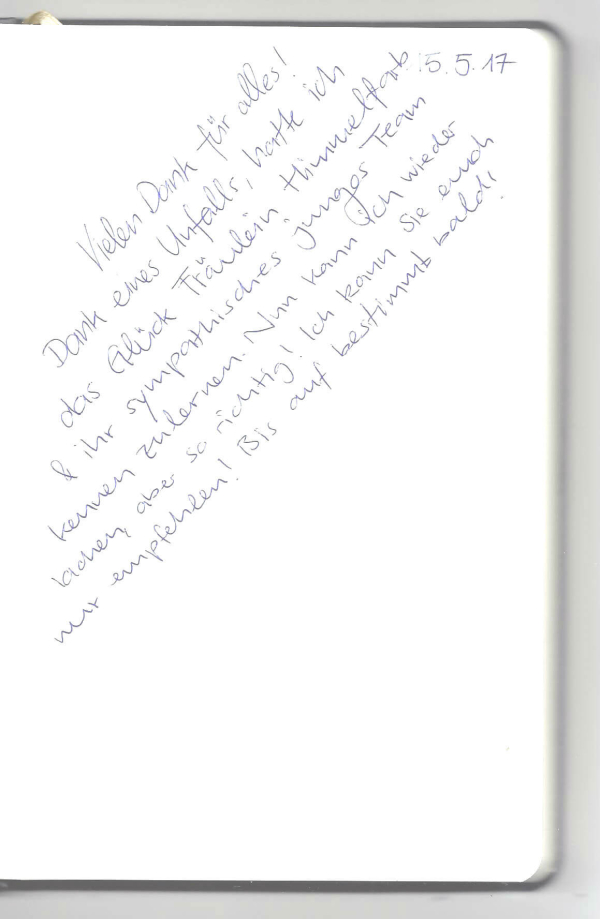 15.5.17
Vielen Dank für alles!
Dank eines Unfalls, hatte ich
das Glück Fräulein Himmelfarb
& ihr sympathisches junges Team
kennen zulernen. Nun kann ich wieder
lachen, aber so richtig! Ich kann Sie euch
nur empfehlen! Bis auf bestimmt bald!